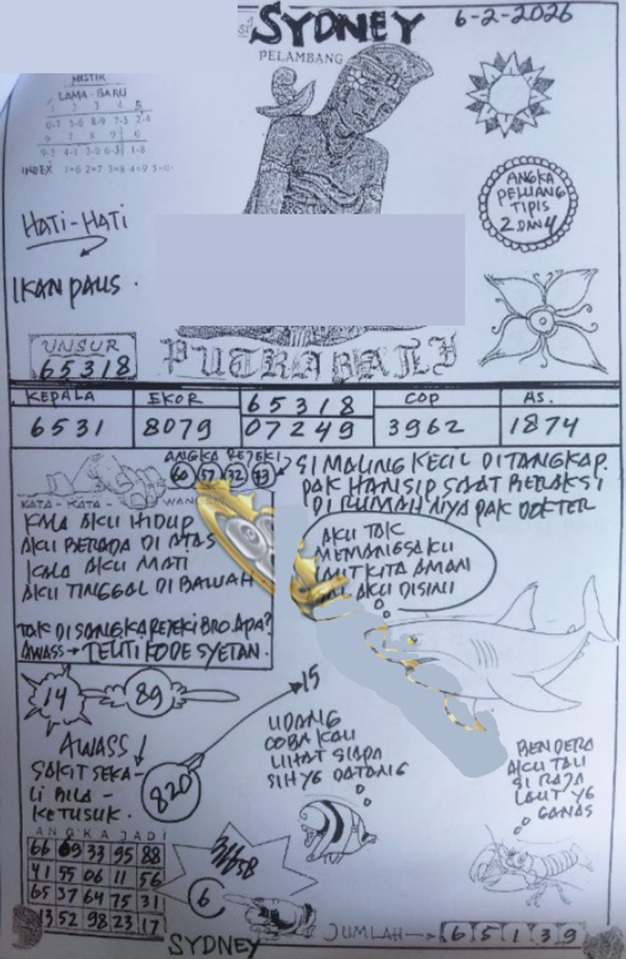 SYDNEY
6-2-2026
PELAMBANG
MISTIK
LAMA-BARU
1 2 3 4 5
0-7 3-6 8-9 7-3 2-4
6 7 8 9 0
INDEX 1=6 2=7 3=8 4=9 5=0
HATI-HATI
IKAN PAUS.
ANGKA
PELUANG
TIPIS
2 DAN 4
UNSUR
65318
PUTRA BALI
KEPALA EKOR 65318 COP AS.
6531 8079 07249 3962 1874
ANGKA REJEKI
60 57 32
KATA-KATA-
KALA AKU HIDUP
AKU BERADA DI ATAS
KALA AKU MATI
AKU TINGGAL DI BAWAH
TAK DISANGKA REJEKI BRO. APA?
AWASS → TELITI KODE SYETAN.
SI MALING KECIL DITANGKAP.
PAK HANSIP SAAT BERAKSI
DI RUMAH NYA PAK DOKTER
AKU TAK
MEMANGSA KU
LAUT KITA AMAN
AKU DISINI
14
89
15
AWASS!
SAKIT SEKA-
LI BILA -
KETUSUK.
820
UDANG
COBA KAU
LIHAT SIAPA
SIH YG DATANG
BENDERA
AKU TAU
SI RAJA
LAUT YG
GANAS
ANGKA JADI
66 69 33 95 88
41 55 06 11 56
65 37 64 75 31
13 52 98 23 17
6
SYDNEY
JUMLAH → 65139